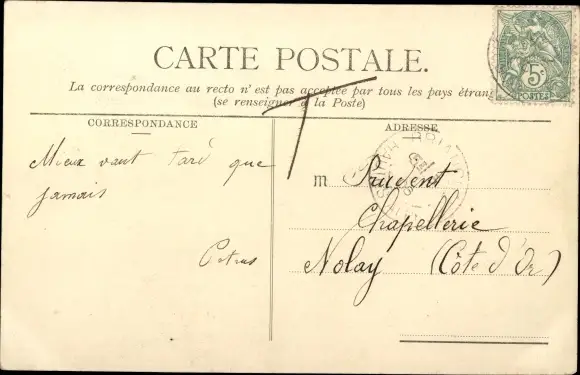 CARTE POSTALE.
La correspondance au recto n'est pas acceptée par tous les pays étrang
(se renseigner à la Poste)
CORRESPONDANCE
ADRESSE
Mieux vaut tard que
jamais
Petrus
M Prudent
Chapellerie
Nolay (Côte d'Or)
5c
POSTES